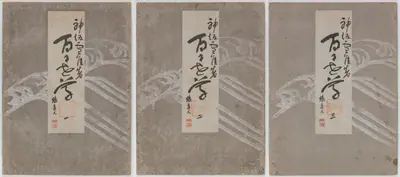 神坂雪佳著
百々世草
一
神坂雪佳著
百々世草
二
神坂雪佳著
百々世草
三